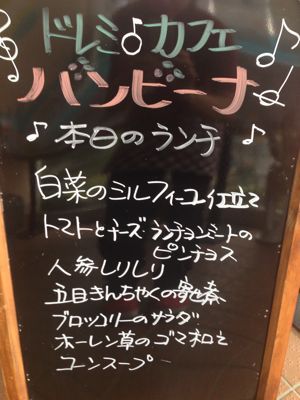 ドレミ♪カフェ
バンビーナ
♪本日のランチ♪
白菜のミルフィーユ仕立て
トマトとチーズ・ランチョンミートの
ピンチョス
人参しりしり
五目きんちゃくの
ブロッコリーのサラダ
ホーレン草のゴマ和え
コーンスープ